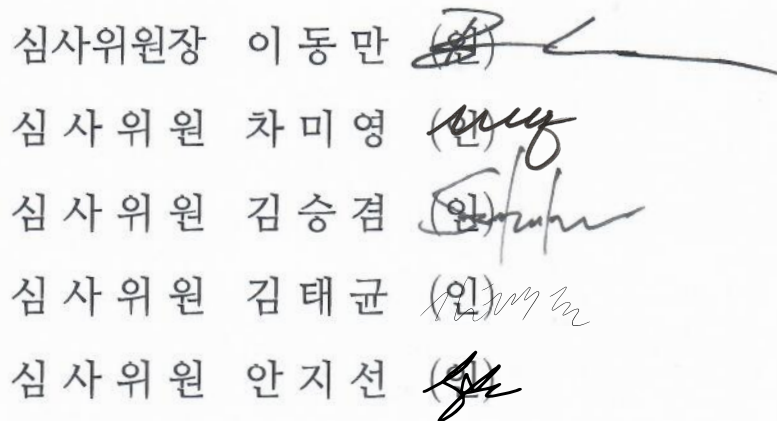 심사위원장 이 동 만 (인)
심 사 위 원 차 미 영 (인)
심 사 위 원 김 승 겸 (인)
심 사 위 원 김 태 균 (인)
심 사 위 원 안 지 선 (인)